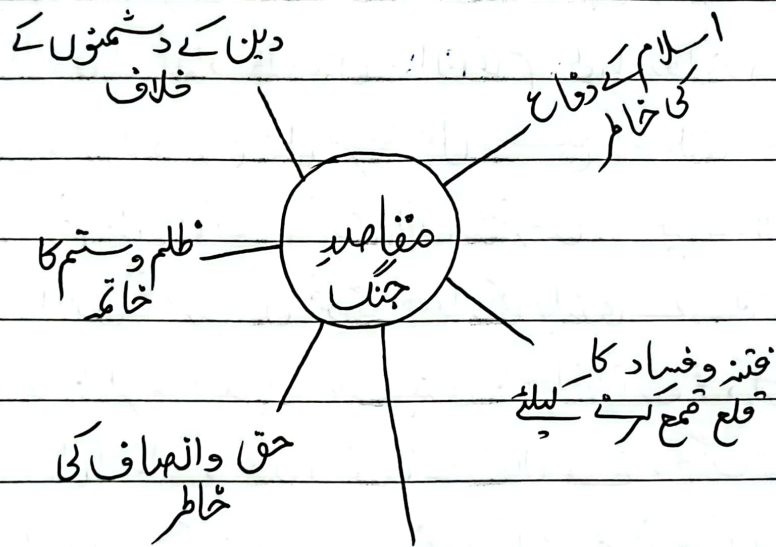 مقاصدِ
جنگ
اسلام کے دفاع
کی خاطر
دین کے دشمنوں کے
خلاف
ظلم و ستم کا
خاتمہ
فتنہ و فساد کا
قلع قمع کرنے کیلئے
حق و انصاف کی
خاطر